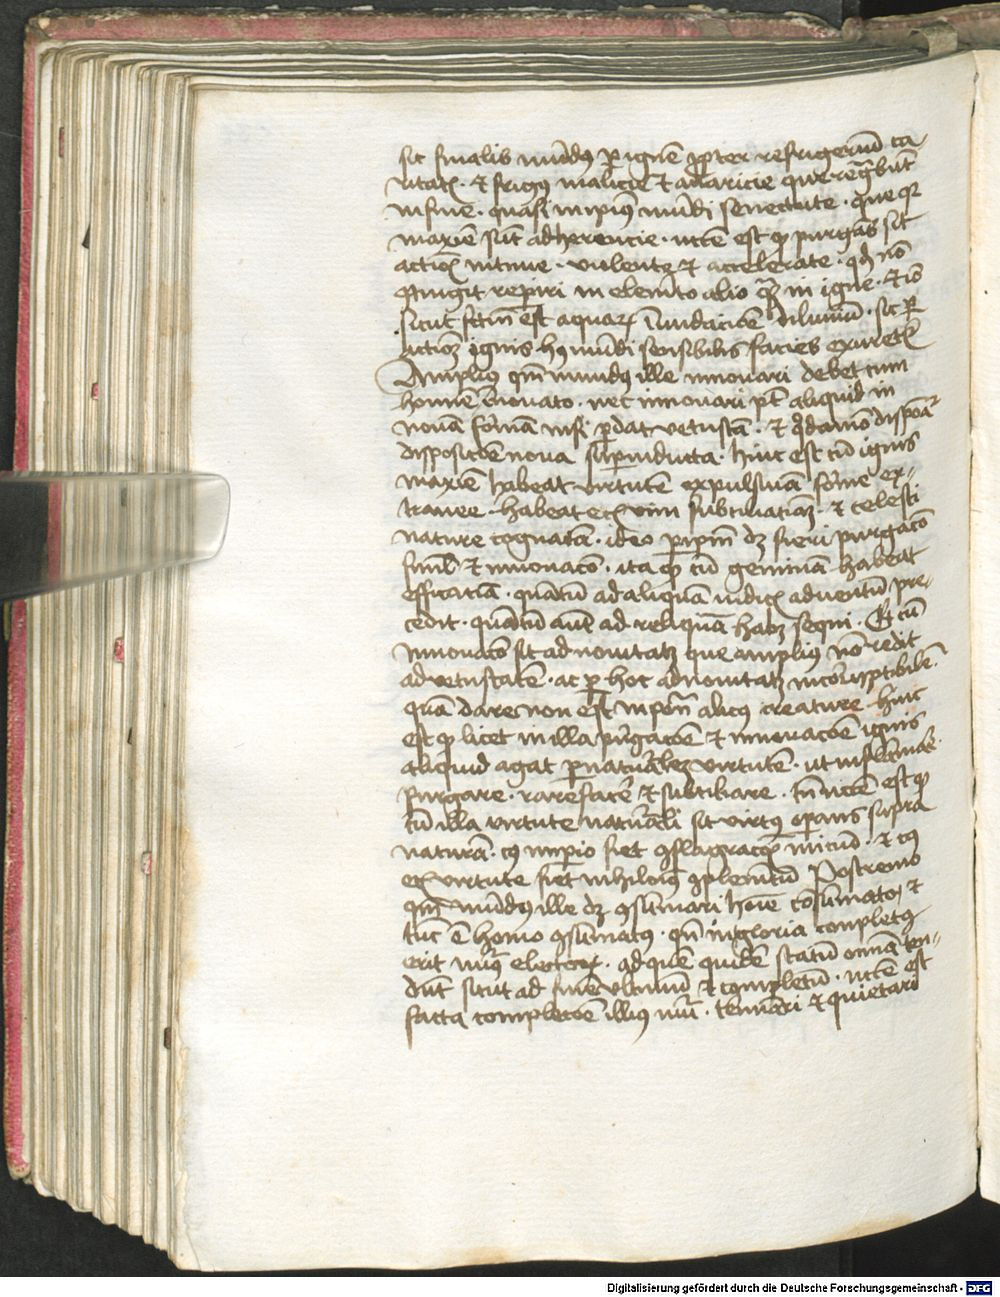 sic finalis mundus per ignem propter refrigerium ca-
ritatis · et frigus malicie et avaricie que regnabunt
in fine · quasi in ipsius mundi senectute · que quia
maxime sunt adherencie · necesse est quod purgans sit
actionis intime · violente et accelerate · quod non
contingit reperiri in elemento alio quam in igne · et ideo
sicut factum est aquarum inundacione diluvium · sic per
ignis huius mundi sensibilis facies exuretur
Amplius quoniam mundus ille innovari debet cum
homine innovato · nec innovari potest aliquid in
novam formam nisi perdat vetustam · et quodammodo disponatur
disposicione nova superinducta · hinc est cum ignis
maxime habeat virtutem expulsivam forme ex-
tranee · habeat eciam vim subtiliativam · et celesti
nature cognatam · ideo per ipsum debet fieri purgacio
simul et innovacio · ita quod cum geminam habeat
efficaciam · quantum ad aliquam iudicis adventum pre-
cedit · quantum autem ad reliquam habet sequi · Et cum
innovacio sit ad novitatem que amplius non redit
ad vetustatem · ac per hoc ad novitatem incorruptibilem
quam dare non est in potestate alicuius creature hinc
est quod licet in illa purgacione et innovacione ignis
aliquid agat per naturalem virtutem · ut inflammare
purgare · rarefacere et subtiliare · tamen necesse est quod
cum illa virtute naturali sit virtus operans supra
naturam · cuius imperio fiet conflagracionis inicium · et cuius
eciam virtute fiet nihilominus complementum Postremo
quoniam mundus ille debet consummari homine consummato et
tunc est homo consummatus · quando in gloria completus
erit numerus electorum · ad quem quidem statum omnia ten-
dunt sicut ad finem ultimum et completum · necesse est
facta complecione illius numeri · terminari et quietari
Digitalisierung gefördert durch die Deutsche Forschungsgemeinschaft - DFG